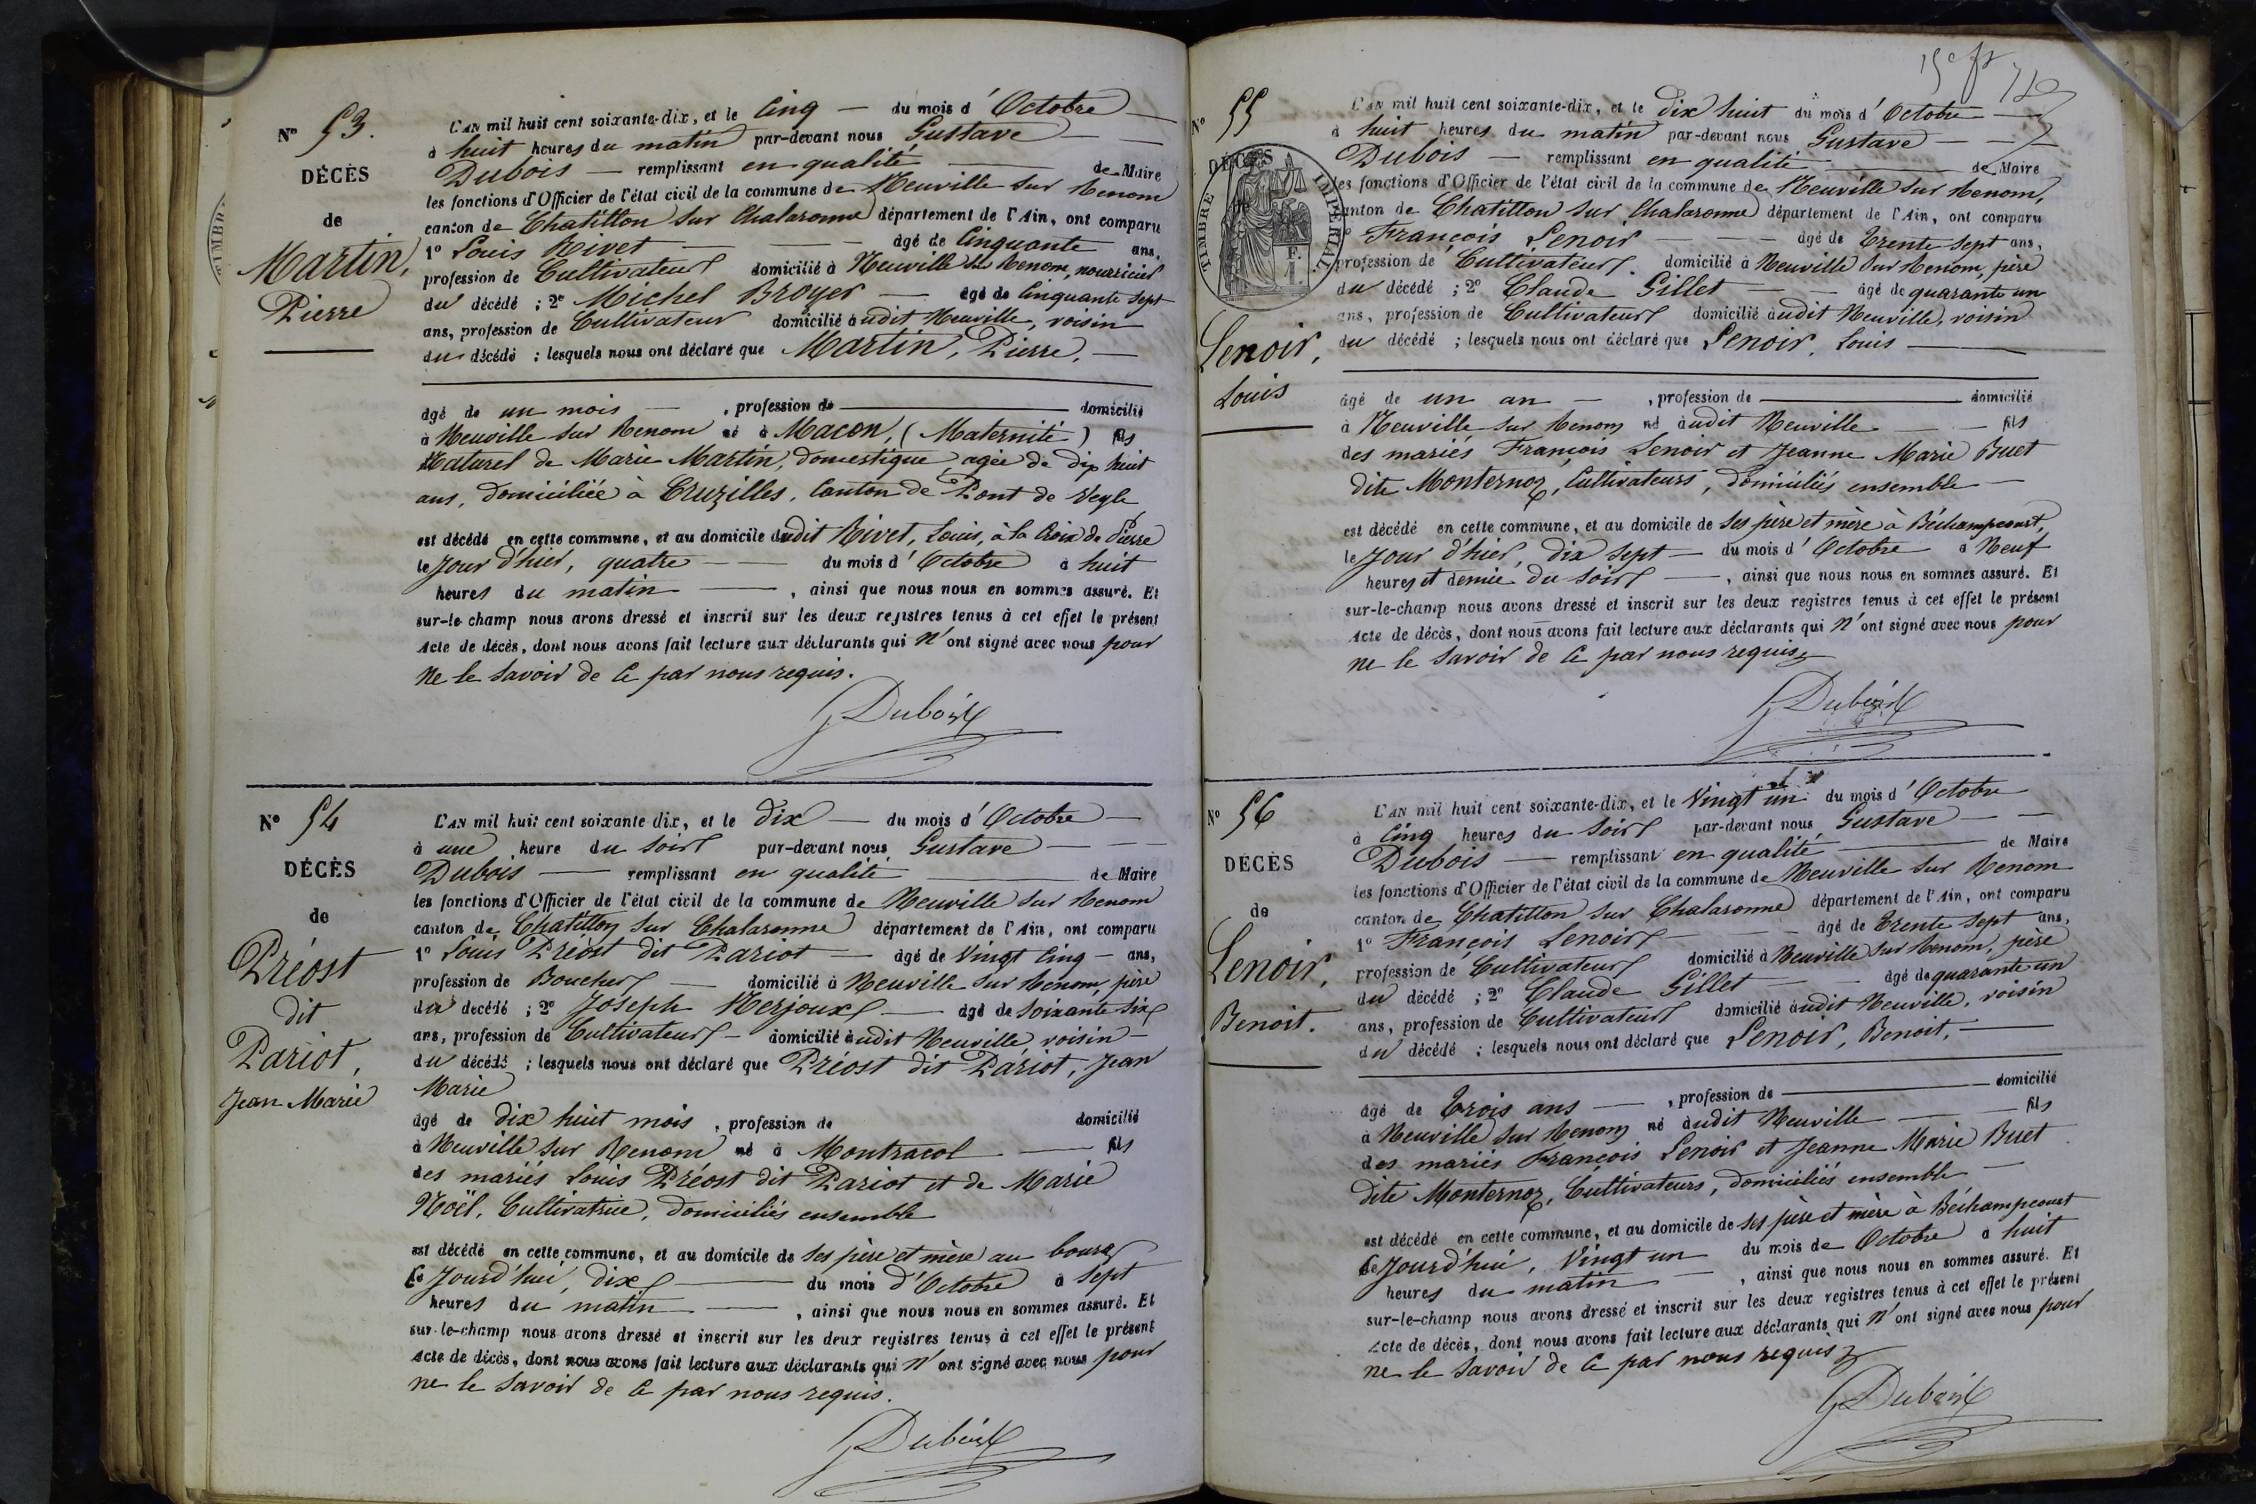 N° 53.
DÉCÈS
de
Martin,
Pierre
L'AN mil huit cent soixante-dix, et le Cinq — du mois d'Octobre —
à huit heures du matin par-devant nous Gustave —
Dubois — remplissant en qualité — de Maire
les fonctions d'Officier de l'état civil de la commune de Neuville sur Renom
canton de Chatillon sur Chalaronne département de l'Ain, ont comparu
1° Louis Rivet — — âgé de Cinquante ans,
profession de Cultivateur domicilié à Neuville sur Renom, nourricier
du décédé ; 2° Michel Broyer — âgé de Cinquante sept
ans, profession de Cultivateur domicilié audit Neuville, voisin
du décédé ; lesquels nous ont déclaré que Martin, Pierre, —
âgé de un mois — , profession de — domicilié
à Neuville sur Renom né à Macon, (Maternité) fils
Naturel de Marie Martin, domestique, agée de dix huit
ans, domiciliée à Cruzilles, Canton de Pont de Veyle
est décédé en cette commune, et au domicile dudit Rivet, Louis, à la Croix de Pierre
le Jour d'hier, quatre — — du mois d'Octobre à huit
heures du matin — , ainsi que nous nous en sommes assuré. Et
sur-le-champ nous avons dressé et inscrit sur les deux registres tenus à cet effet le présent
Acte de décès, dont nous avons fait lecture aux déclarants qui n'ont signé avec nous pour
ne le savoir de ce par nous requis.
G Dubois
N° 54
DÉCÈS
de
Préost
dit
Pariot,
Jean Marie
L'AN mil huit cent soixante dix, et le dix — du mois d'Octobre —
à une heure du soir par-devant nous Gustave — —
Dubois — remplissant en qualité — de Maire
les fonctions d'Officier de l'état civil de la commune de Neuville sur Renom
canton de Chatillon sur Chalaronne département de l'Ain, ont comparu
1° Louis Préost dit Pariot — âgé de Vingt Cinq — ans,
profession de Boucher — domicilié à Neuville sur Renom, père
du décédé ; 2° Joseph Merjoux — âgé de soixante six
ans, profession de Cultivateur — domicilié audit Neuville voisin —
du décédé ; lesquels nous ont déclaré que Préost dit Pariot, Jean
Marie
âgé de dix huit mois , profession de domicilié
à Neuville sur Renom né à Montracol — fils
des mariés Louis Préost dit Pariot et de Marie
Noël, Cultivatrice, domiciliés ensemble
est décédé en cette commune, et au domicile de ses père et mère au bourg
le Jourd'hui, dix — du mois d'Octobre à sept
heures du matin — , ainsi que nous nous en sommes assuré. Et
sur-le-champ nous avons dressé et inscrit sur les deux registres tenus à cet effet le présent
Acte de décès, dont nous avons fait lecture aux déclarants qui n'ont signé avec nous pour
ne le savoir de ce par nous requis.
G Dubois
N° 55
DÉCÈS
TIMBRE IMPÉRIAL.
Lenoir,
Louis
L'AN mil huit cent soixante-dix, et le dix huit du mois d'Octobre —
à huit heures du matin par-devant nous Gustave — —
Dubois — remplissant en qualité — de Maire
les fonctions d'Officier de l'état civil de la commune de Neuville sur Renom,
canton de Chatillon sur Chalaronne département de l'Ain, ont comparu
François Lenoir — — âgé de Trente sept ans,
profession de Cultivateur. domicilié à Neuville sur Renom, père
du décédé ; 2° Claude Gillet — — âgé de quarante un
ans, profession de Cultivateur domicilié audit Neuville, voisin
du décédé ; lesquels nous ont déclaré que Lenoir, Louis —
âgé de un an — , profession de — domicilié
à Neuville sur Renom né audit Neuville — — fils
des mariés François Lenoir et Jeanne Marie Buet
dite Monternoz, Cultivateurs, domiciliés ensemble —
est décédé en cette commune, et au domicile de ses père et mère à Béchampcourt,
le Jour d'hier, dix sept — du mois d'Octobre à Neuf
heures et demie du soir — , ainsi que nous nous en sommes assuré. Et
sur-le-champ nous avons dressé et inscrit sur les deux registres tenus à cet effet le présent
Acte de décès, dont nous avons fait lecture aux déclarants qui n'ont signé avec nous pour
ne le savoir de ce par nous requis
G Dubois
N° 56
DÉCÈS
de
Lenoir,
Benoit.
L'AN mil huit cent soixante-dix, et le Vingt un du mois d'Octobre
à Cinq heures du soir par-devant nous Gustave — —
Dubois — remplissant en qualité — de Maire
les fonctions d'Officier de l'état civil de la commune de Neuville sur Renom
canton de Chatillon sur Chalaronne département de l'Ain, ont comparu
1° François Lenoir — — âgé de Trente sept ans,
profession de Cultivateur domicilié à Neuville sur Renom, père
du décédé ; 2° Claude Gillet — âgé de quarante un
ans, profession de Cultivateur domicilié audit Neuville, voisin
du décédé ; lesquels nous ont déclaré que Lenoir, Benoit, —
âgé de Trois ans — , profession de — domicilié
à Neuville sur Renom né audit Neuville — — fils
des mariés François Lenoir et Jeanne Marie Buet
dite Monternoz, Cultivateurs, domiciliés ensemble —
est décédé en cette commune, et au domicile de ses père et mère à Béchampcourt
le Jourd'hui, Vingt un du mois de Octobre à huit
heures du matin — , ainsi que nous nous en sommes assuré. Et
sur-le-champ nous avons dressé et inscrit sur les deux registres tenus à cet effet le présent
Acte de décès, dont nous avons fait lecture aux déclarants qui n'ont signé avec nous pour
ne le savoir de ce par nous requis
G Dubois